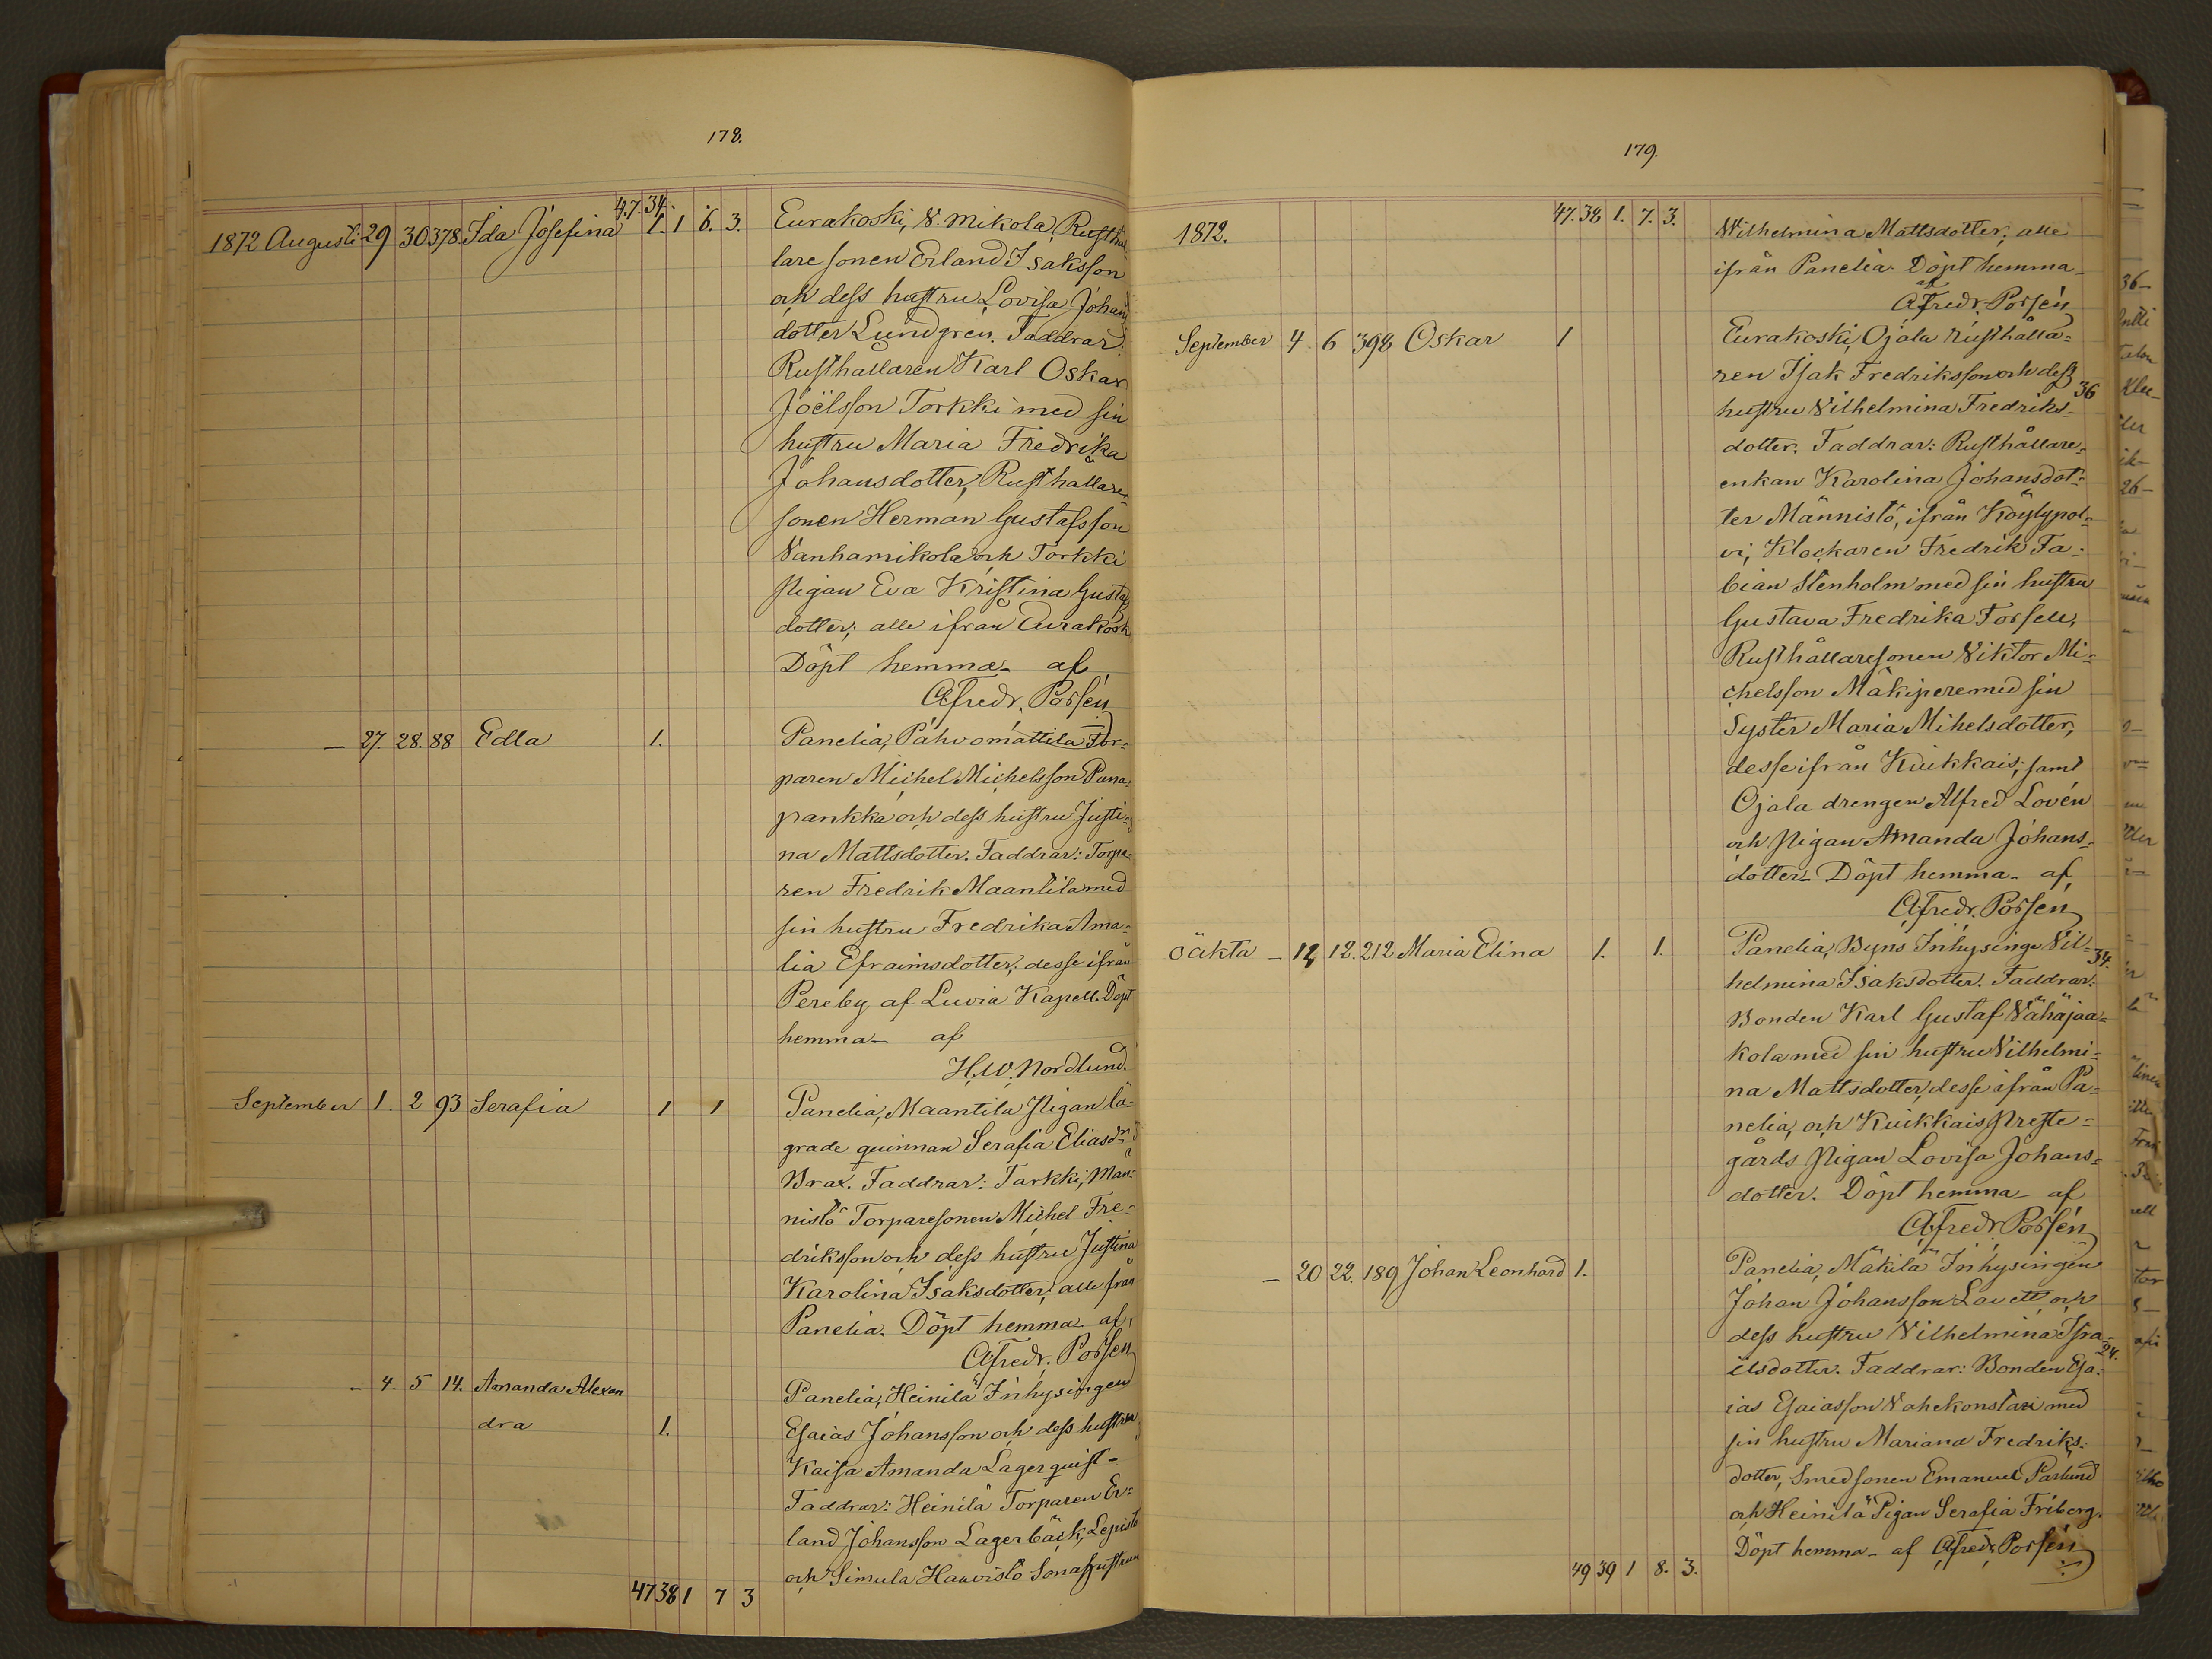 178.
47. 34.
1872 Augusti 29 30 378 Ida Josefina 1. 1 6. 3. Eurakoski, V. Mikola, Rusthål
lare sonen Erland Isaksson
och dess hustru Lovisa Johans
dotter Lundgren. Faddrar:
Rusthållaren Karl Oskar
Joëlsson Torkki med sin
hustru Maria Fredrika
Johansdotter, Rusthållare
sonen Herman Gustafsson
Vanhamikola och Torkki
Pigan Eva Kristina Gustafs
dotter; alle ifrån Eurakosk
Döpt hemma af
A Fredr. Porsén
— 27. 28. 88 Edla 1. Panelia, Pahvomattila Tor=
paren Michel Michelsson Puna=
pankka och dess hustru Justi=
na Mattsdotter. Faddrar: Torpa=
ren Fredrik Maantila med
sin hustru Fredrika Ama=
lia Efraimsdotter; desse ifrån
Pereby af Luvia Kapell. Döpt
hemma af
H. W. Nordlund.
September 1. 2 93 Serafia 1 1 Panelia, Maantila Pigan lä=
grade quinnan Serafia Eliasdr
Brax. Faddrar: Tarkki, Män=
nistö Torparesonen Michel Fre=
driksson och dess hustru Justina
Karolina Isaksdotter; alle från
Panelia. Döpt hemma af
A Fredr. Porsén
— 4. 5 14. Amanda Alexan Panelia, Heinilä Inhysingen
dra 1. Esaias Johansson och dess hustru
Kaisa Amanda Lagerquist-
Faddrar: Heinilä Torparen Er=
land Johansson Lagerbäck, Lepistö
och Simula Haavistö Sonahustrun
47 38 1 7 3
179.
47. 38 1. 7. 3.
1872. Wilhelmina Mattsdotter; alle
ifrån Panelia. Döpt hemma
af
A Fredr. Porsén
September 4 6 398 Oskar 1 Eurakoski, Ojala rusthålla=
ren Isak Fredriksson och dess
36
hustru Vilhelmina Fredriks=
dotter. Faddrar: Rusthållare=
enkan Karolina Johansdot=
ter Männistö, ifrån Köylypol=
vi, Klockaren Fredrik Fa=
bian Stenholm med sin hustru
Gustava Fredrika Forsell,
Rusthållaresonen Viktor Mi=
chelsson Mäkipere med sin
Syster Maria Mihelsdotter,
desse ifrån Kiukkais; samt
Ojala drengen Alfred Lovén
och Pigan Amanda Johans=
dotter. Döpt hemma af
A Fredr. Porsén
oäkta — 12 12. 212 Maria Elina 1. 1. Panelia, Byns Inhysinge Vil=
34.
helmina Isaksdotter. Faddrar:
Bonden Karl Gustaf Vähäjaa=
kola med sin hustru Vilhelmi=
na Mattsdotter, desse ifrån Pa=
nelia, och Kiukkais Preste=
gårds Pigan Lovisa Johans=
dotter. Döpt hemma af
A Fredr. Porsén
— 20 22. 189 Johan Leonhard 1. Panelia, Mäkilä Inhysingen
Johan Johansson Lavett och
dess hustru Vilhelmina Isra=
24.
ilsdotter. Faddrar: Bonden Esa=
ias Esaiasson Vahekonstari med
sin hustru Mariana Fredriks=
dotter, Smedsonen Emanuel Parlund
och Heinilä Pigan Serafia Friberg.
Döpt hemma af A Fredr. Porsén
49 39 1 8. 3.